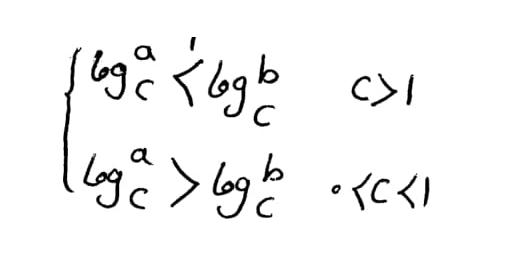 log_c^a < log_c^b c>1
log_c^a > log_c^b ۰<c<1